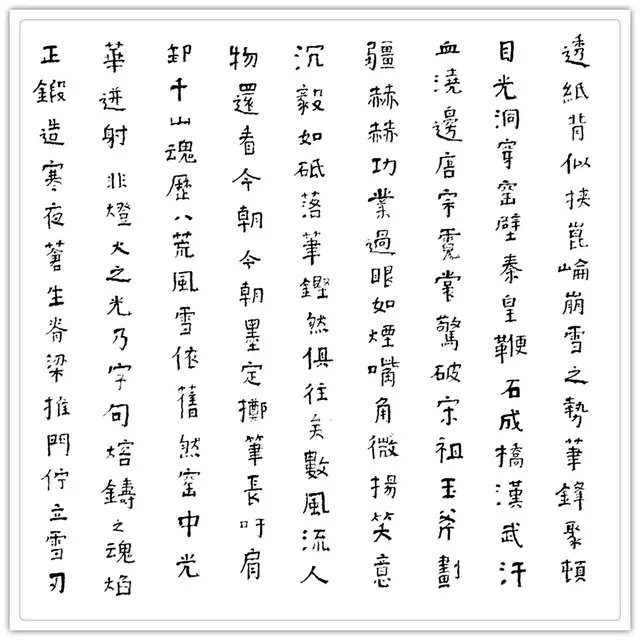 透紙背似挾崑崘崩雪之勢筆鋒聚頓
目光洞穿窑壁秦皇鞭石成橋漢武汗
血澆邊唐宗霓裳驚破宋祖玉斧劃
疆赫赫功業過眼如煙嘴角微揚笑意
沉毅如砥落筆鏗然俱往矣數風流人
物還看今朝今朝墨定擲筆長吁肩
卸千山魂歷八荒風雪依舊然窑中光
華迸射非燈火之光乃字句熔鑄之魂焰
正鍛造寒夜蒼生脊梁推門佇立雪刃